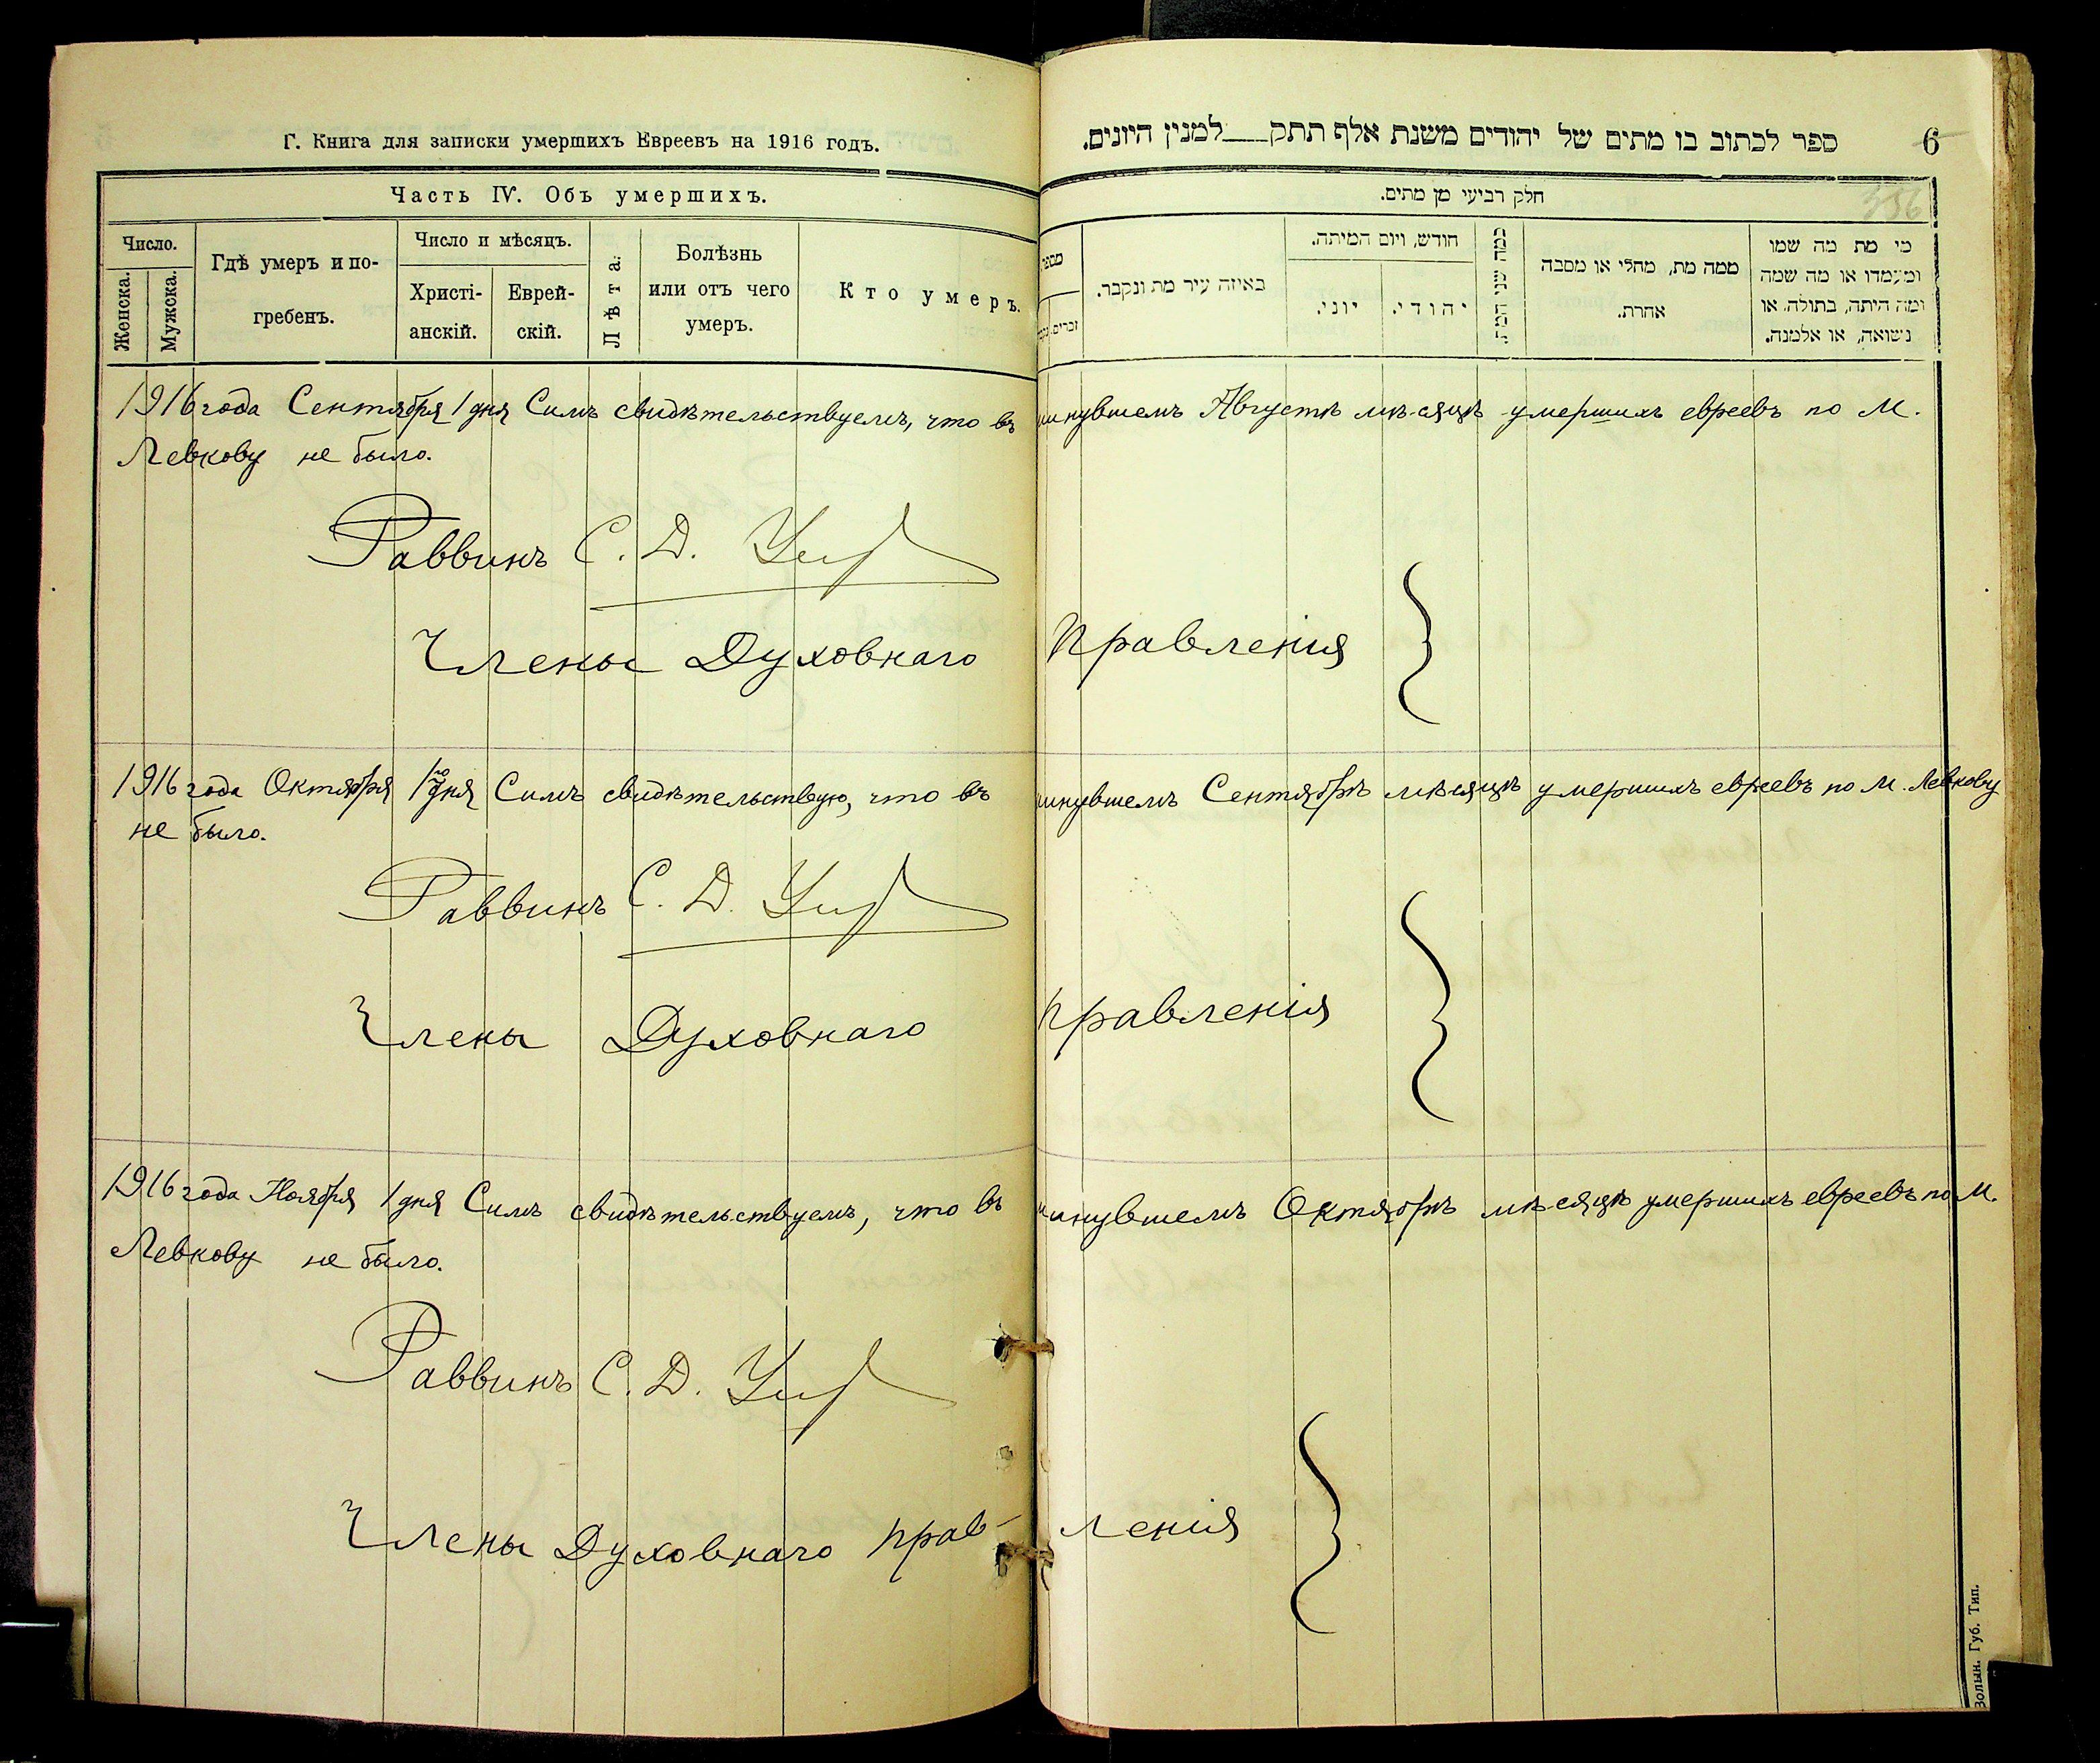 Г. Книга для записки умершихъ Евреевъ на 1916 годъ.
Часть IV. Объ умершихъ.
Число.
Женска.
Мужска.
Гдѣ умеръ и по-
гребенъ.
Число и мѣсяцъ.
Христі-
анскій.
Еврей-
скій.
Лѣта.
Болѣзнь
или отъ чего
умеръ.
Кто умеръ.
ספר לכתוב בו מתים של יהודים משנת אלף תתק___למנין היונים.
6
356
חלק רביעי מן מתים.
מספר
זכרים
באיזה עיר מת ונקבר.
חודש, ויום המיתה.
יוני.
יהודי.
כמה שני המת
ממה מת, מחלי או מסבה
אחרת.
מי מת מה שמו
ומעמדו או מה שמה
ומה היתה, בתולה, או
נשואה, או אלמנה.
1916 года Сентября 1 дня Симъ свидѣтельствуемъ, что въ минувшемъ Августѣ мѣсяцѣ умершихъ евреевъ по м.
Левкову не было.
Раввинъ С. Д.
Члены Духовнаго Правленія
1916 года Октября 1го дня Симъ свидѣтельствую, что въ минувшемъ Сентябрѣ мѣсяцѣ умершихъ евреевъ по м. Левкову
не было.
Раввинъ С. Д.
Члены Духовнаго Правленія
1916 года Ноября 1 дня Симъ свидѣтельствуемъ, что въ минувшемъ Октябрѣ мѣсяцѣ умершихъ евреевъ по м.
Левкову не было.
Раввинъ С. Д.
Члены Духовнаго Правленія
Волын. Губ. Тип.